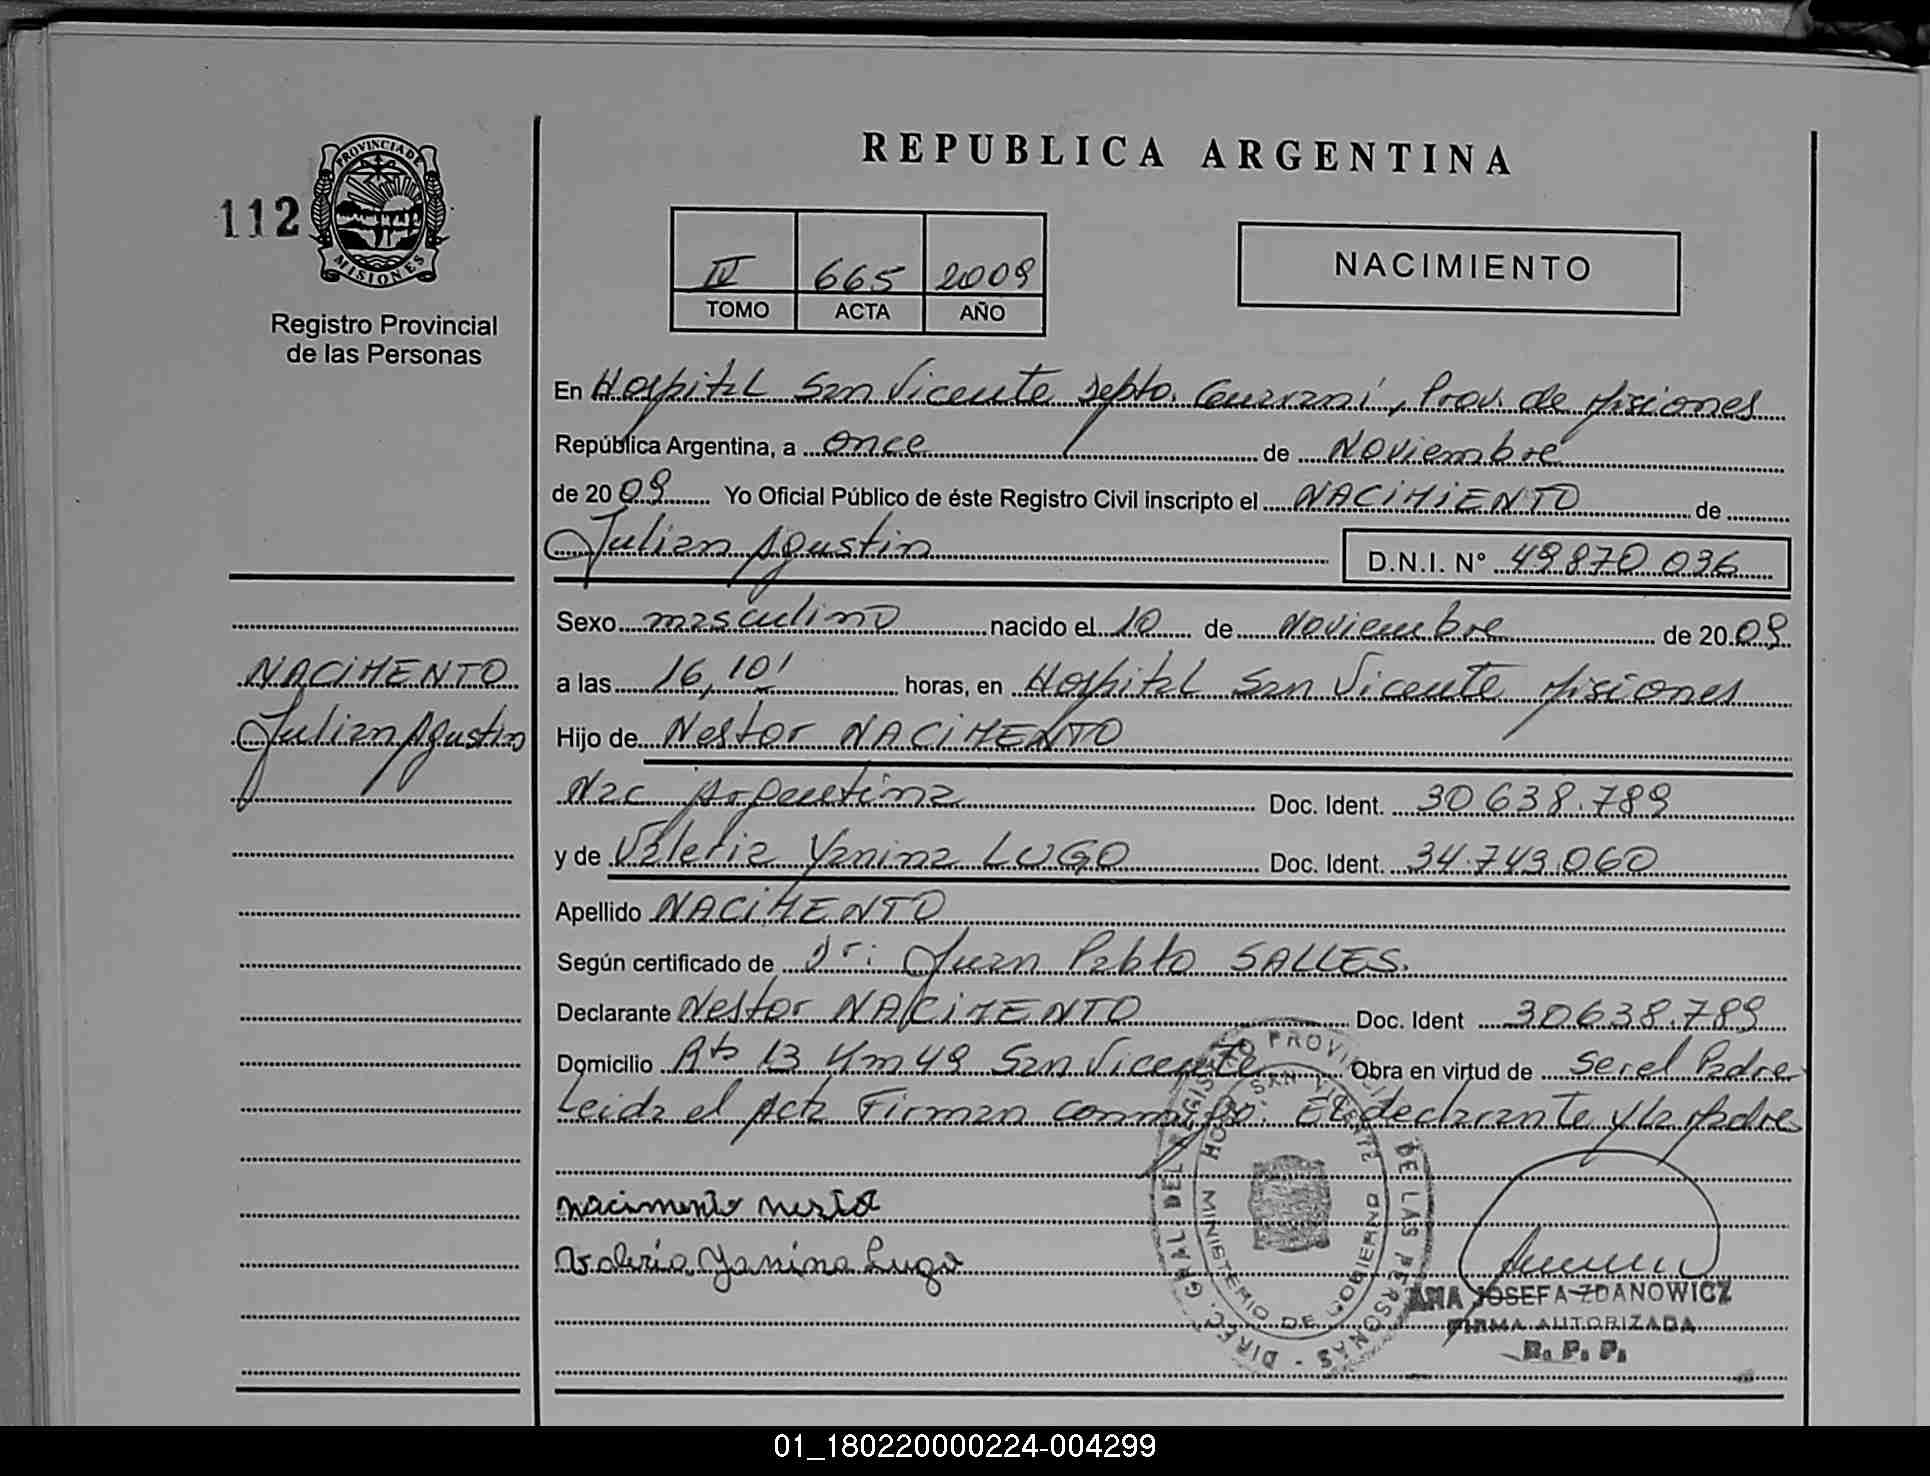 REPUBLICA ARGENTINA
112
PROVINCIA DE
MISIONES
Registro Provincial
de las Personas
IV 665 2009
TOMO ACTA AÑO
NACIMIENTO
En Hospital San Vicente Depto. Guaraní, Prov. de Misiones
República Argentina, a once de Noviembre
de 20 09 Yo Oficial Público de éste Registro Civil inscripto el NACIMIENTO de
Julian Agustin D.N.I. N° 49870036
Sexo masculino nacido el 10 de Noviembre de 20 09
NACIMENTO
Julian Agustin
a las 16,10' horas, en Hospital San Vicente Misiones
Hijo de Nestor NACIMENTO
Nac Argentina Doc. Ident. 30638.789
y de Valeria Yanina LUGO Doc. Ident. 34.743.060
Apellido NACIMENTO
Según certificado de Dr: Juan Pablo SALLES.
Declarante Nestor NACIMENTO Doc. Ident 30638.789
Domicilio Rta 13 Km 49 San Vicente Obra en virtud de ser el Padre
Leida el Acta Firman conmigo: El declarante y la Madre
nacimento nestor
Valeria Yanina Lugo
DIREC. GRAL DEL REGISTRO PROVINCIAL DE LAS PERSONAS
HOSP. SAN VICENTE
MINISTERIO DE GOBIERNO
ANA JOSEFA ZDANOWICZ
FIRMA AUTORIZADA
R. P. P.
01_180220000224-004299